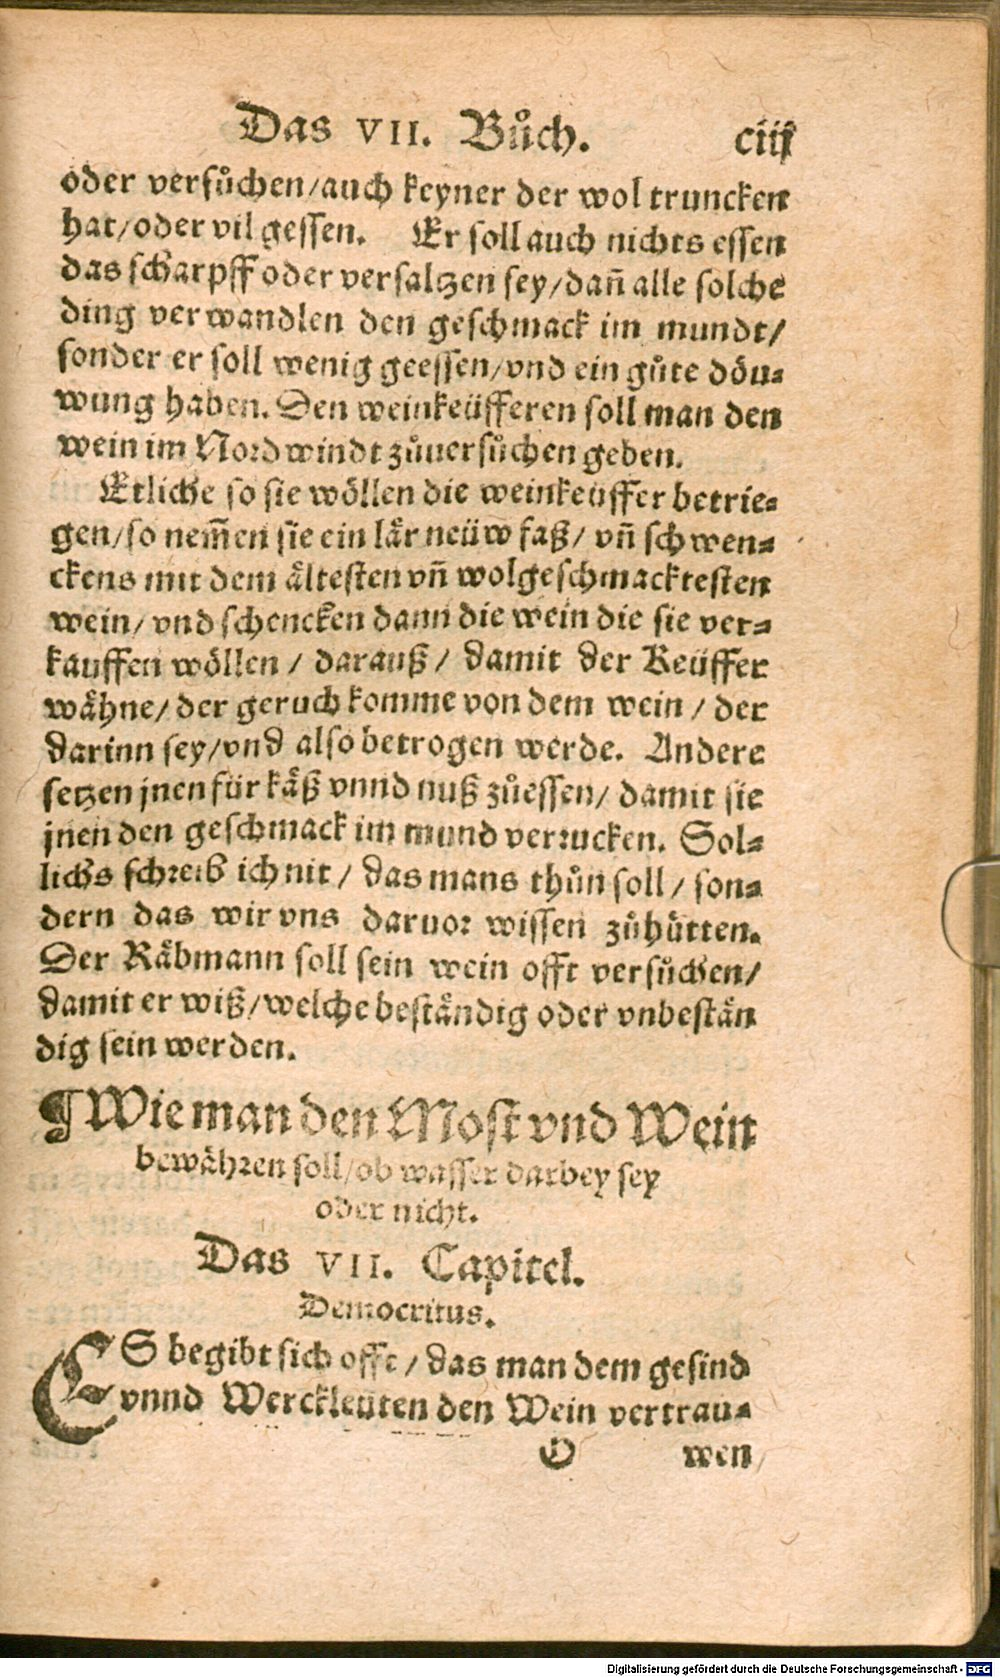 Das VII. Bůch. ciij
oder versůchen/auch keyner der wol truncken
hat/oder vil gessen. Er soll auch nichts essen
das scharpff oder versaltzen sey/dañ alle solche
ding verwandlen den geschmack im mundt/
sonder er soll wenig geessen/vnd ein gůte döu-
wung haben. Den weinkeüfferen soll man den
wein im Nordwindt zůuersůchen geben.
Etliche so sie wöllen die weinkeüffer betrie-
gen/so nem̃en sie ein lär neüw faß/ vñ schwen-
ckens mit dem ältesten vñ wolgeschmacktesten
wein/vnd schencken dann die wein die sie ver-
kauffen wöllen/ darauß/ damit der Keüffer
wähne/der geruch komme von dem wein/ der
darinn sey/vnd also betrogen werde. Andere
setzen jnen für käß vnnd nuß zůessen/ damit sie
jnen den geschmack im mund verrucken. Sol-
lichs schreib ich nit/ das mans thůn soll/ son-
dern das wir vns daruor wissen zůhütten.
Der Räbmann soll sein wein offt versůchen/
damit er wiß/welche beständig oder vnbestän
dig sein werden.
¶Wie man den Most vnd Wein
bewähren soll/ob wasser darbey sey
oder nicht.
Das VII. Capitel.
Democritus.
ES begibt sich offt/das man dem gesind
vnnd Werckleüten den Wein vertrau-
O wen/
Digitalisierung gefördert durch die Deutsche Forschungsgemeinschaft - DFG